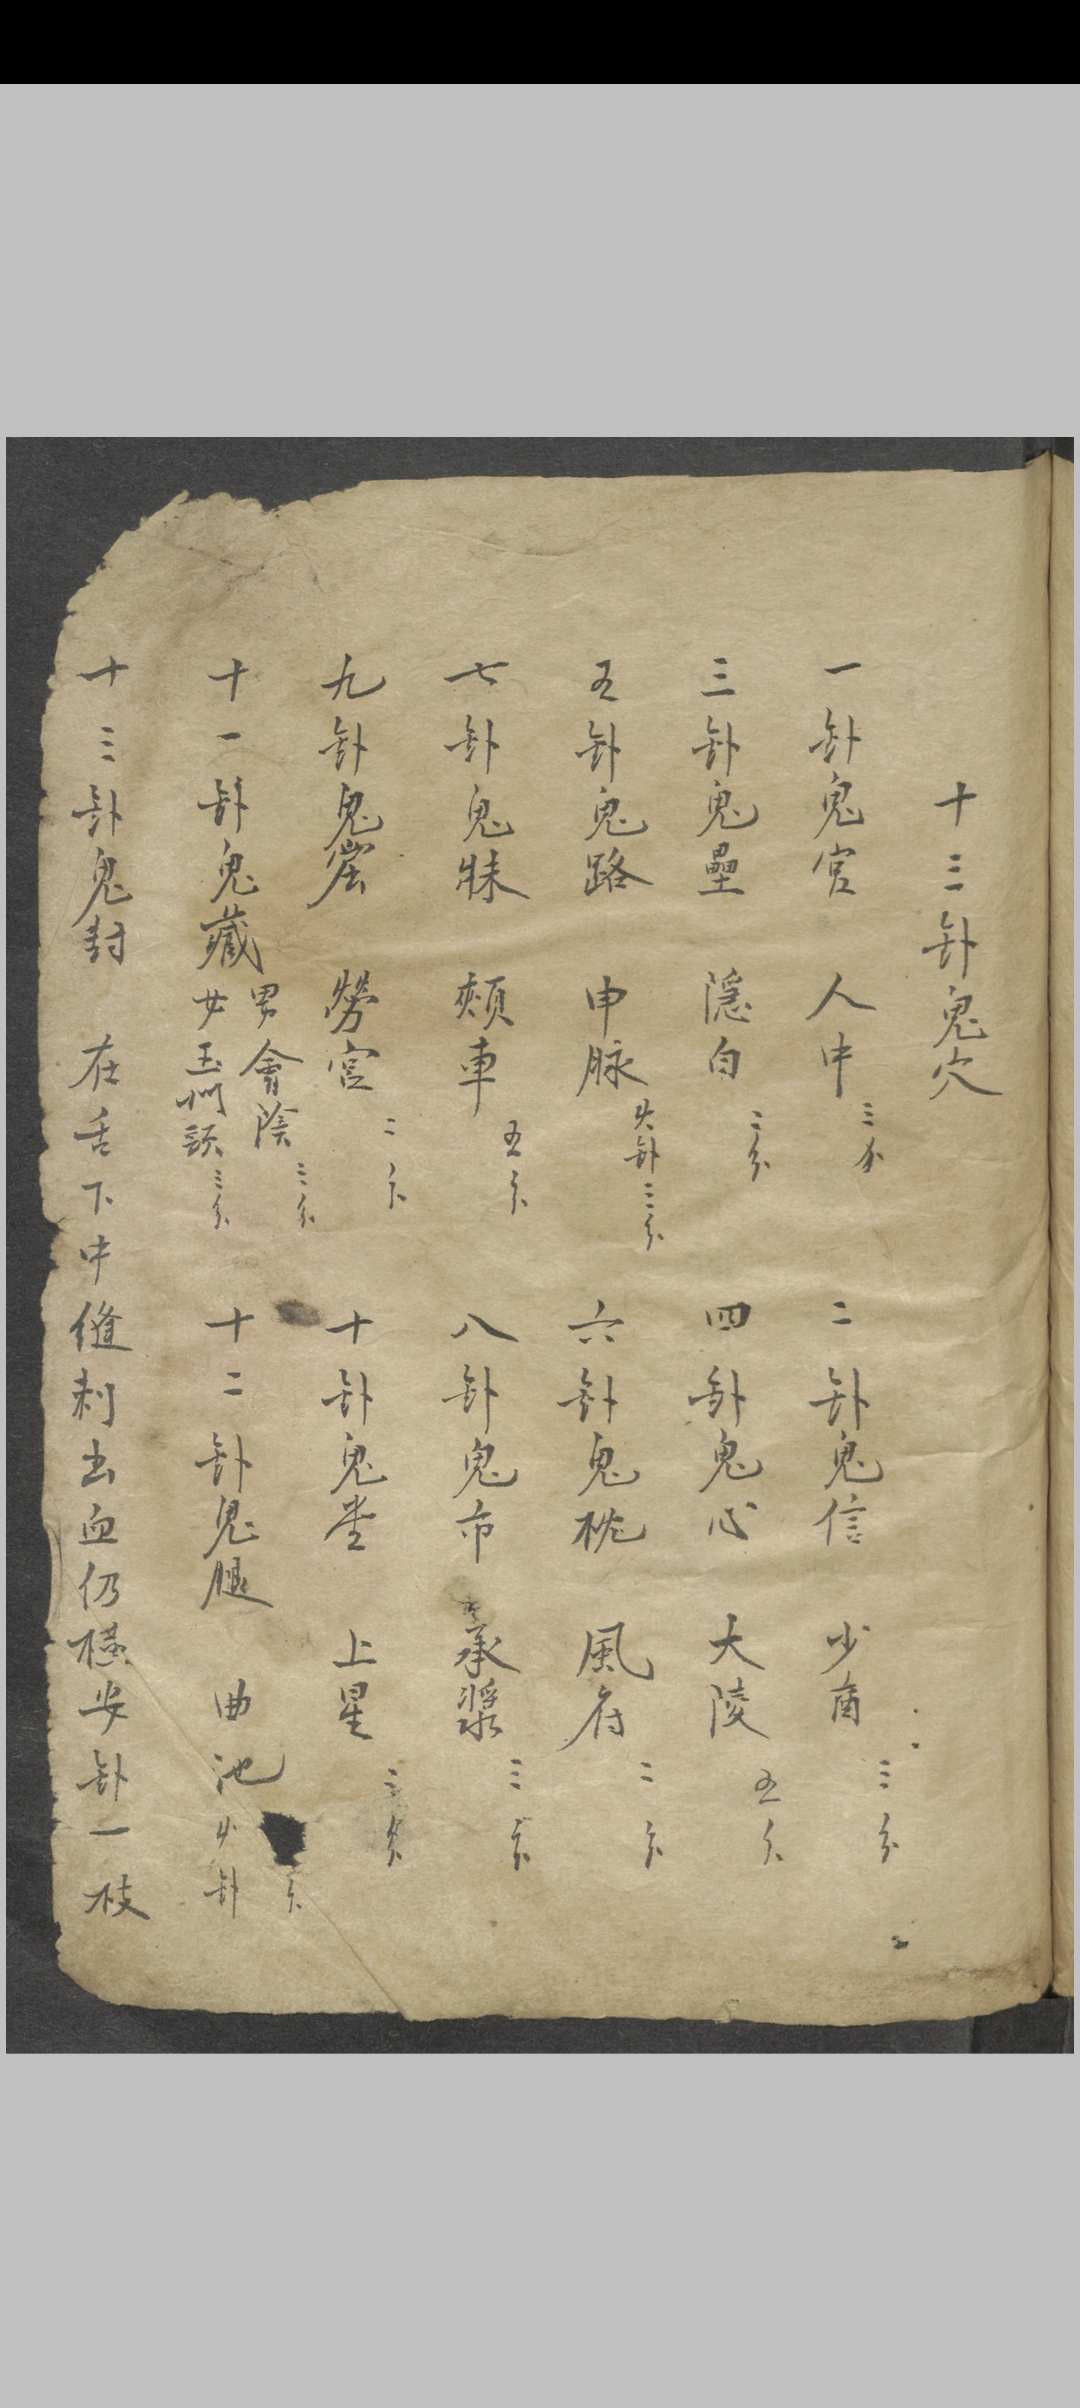 十三針鬼穴
一針鬼宮 人中 三分 二針鬼信 少商 三分
三針鬼壘 隱白 二分 四針鬼心 大陵 五分
五針鬼路 申脉 火針三分 六針鬼枕 風府 二分
七針鬼牀 頰車 五分 八針鬼市 承漿 三分
九針鬼窟 勞宮 二分 十針鬼堂 上星 二分
十一針鬼藏 男會陰三分 女玉門頭三分 十二針鬼腿 曲池 火針 分
十三針鬼封 在舌下中縫刺出血仍橫安針一枝